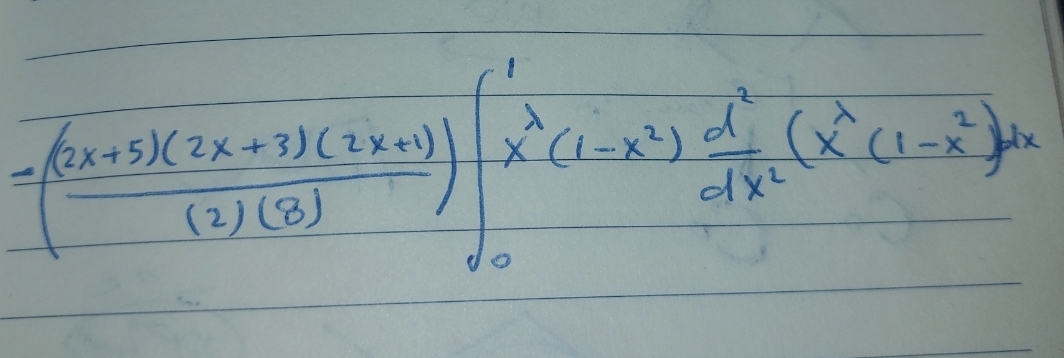 $-\left(\frac{(2x+5)(2x+3)(2x+1)}{(2)(8)}\right) \int_0^1 x^\lambda (1-x^2) \frac{d^2}{dx^2} (x^\lambda (1-x^2)) dx$